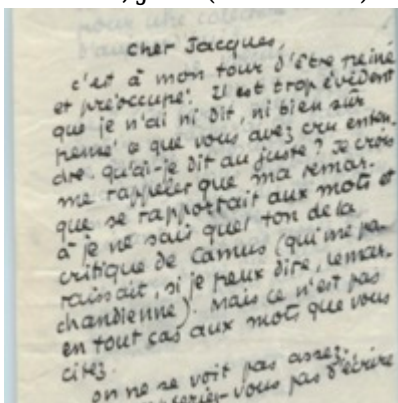 Cher Jacques,
c'est à mon tour d'être peiné
et préoccupé. Il est trop évident
que je n'ai ni dit, ni bien sûr
pensé ce que vous avez cru enten-
dre. qu'ai-je dit au juste ? Je crois
me rappeler que ma remar-
que se rapportait aux mots et
à je ne sais quel ton de la
critique de Camus (qui me pa-
raissait, si je peux dire, lemar-
chandienne). Mais ce n'est pas
en tout cas aux mots que vous
citez.
on ne se voit pas assez.
vous pas d'écrire